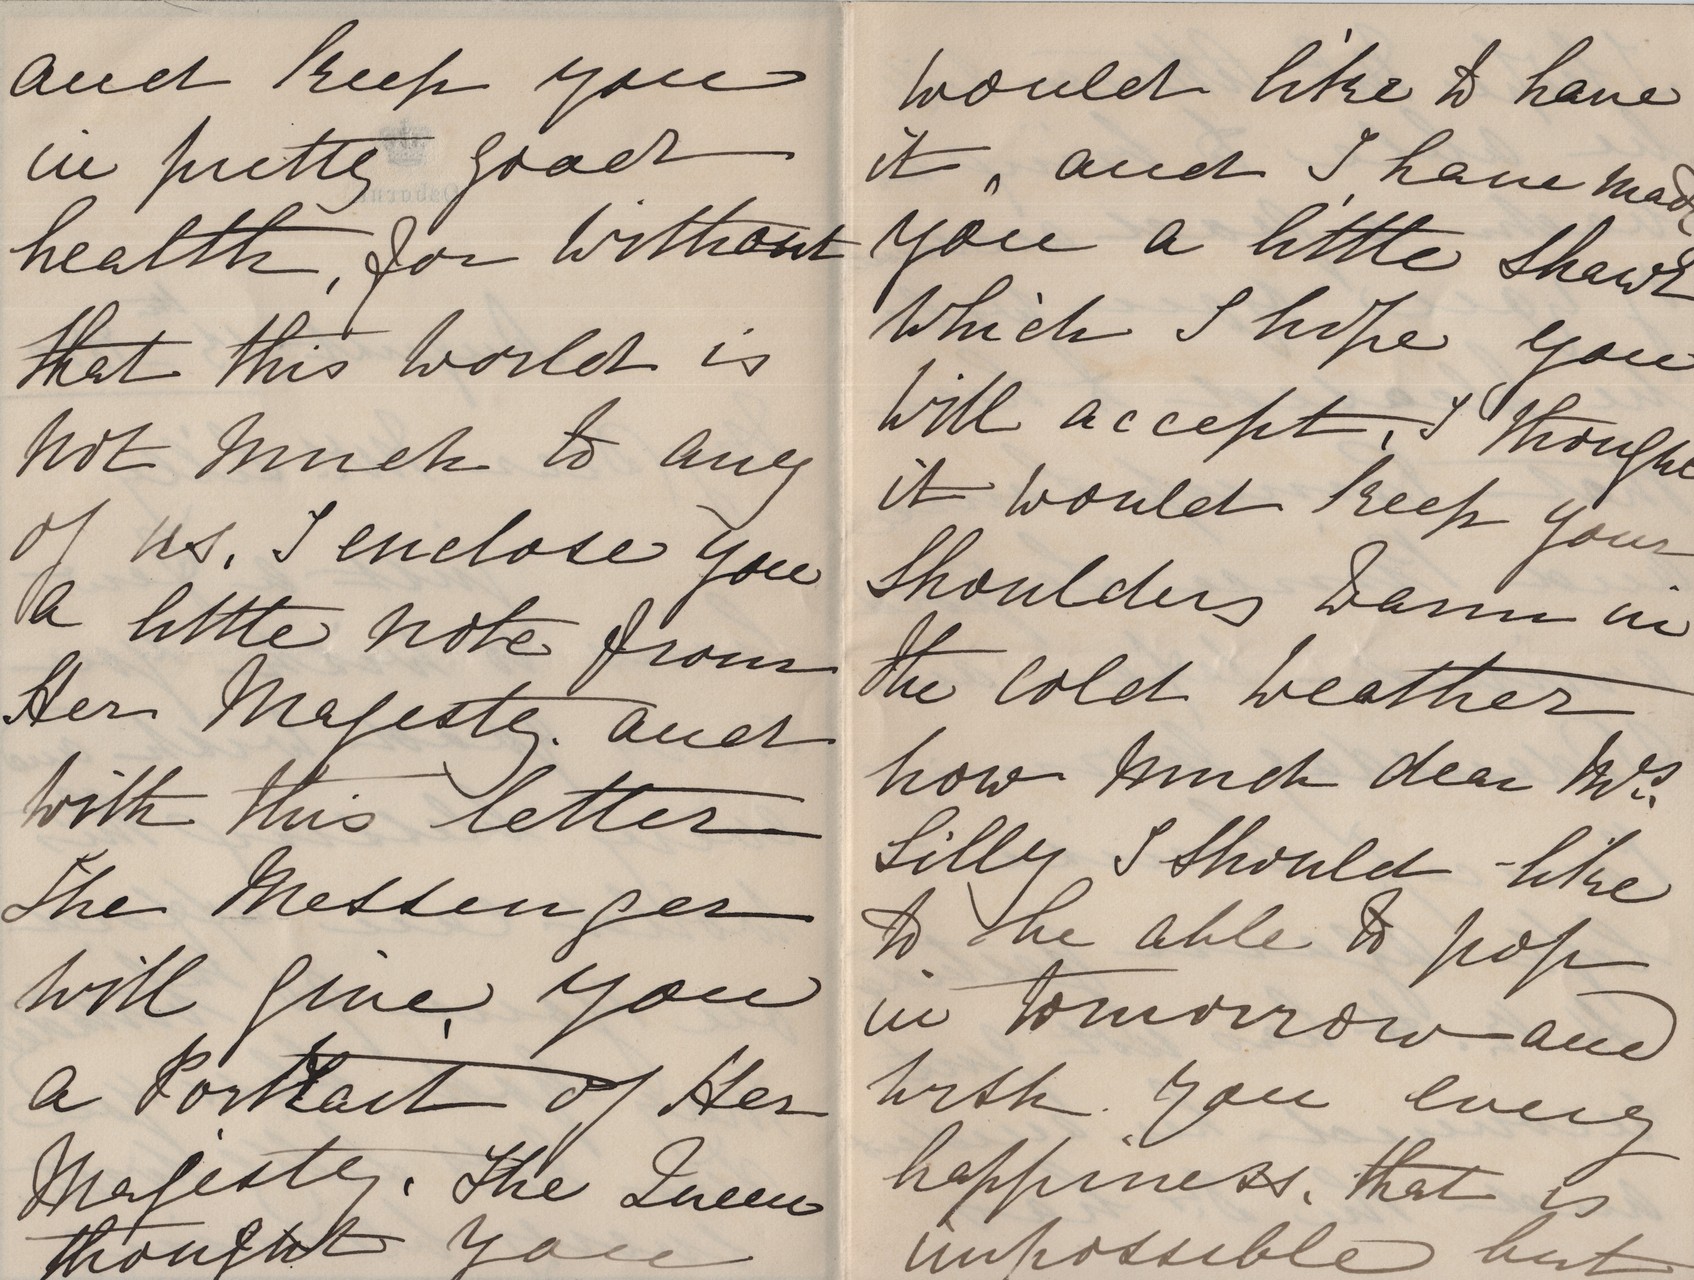 and keep you
in pretty good
health, for without
that this world is
not much to any
of us. I enclose you
a little note from
Her Majesty. and
with this letter
The Messenger
will give, you
a Portrait of Her
Majesty. The Queen
thought you
would like to have
it, and I have made
you a little Shawl
which I hope you
will accept, I thought
it would keep your
Shoulders warm in
the cold weather
how much dear Mrs.
Lilly I should like
to be able to pop
in tomorrow and
wish you every
happiness, that is
impossible but